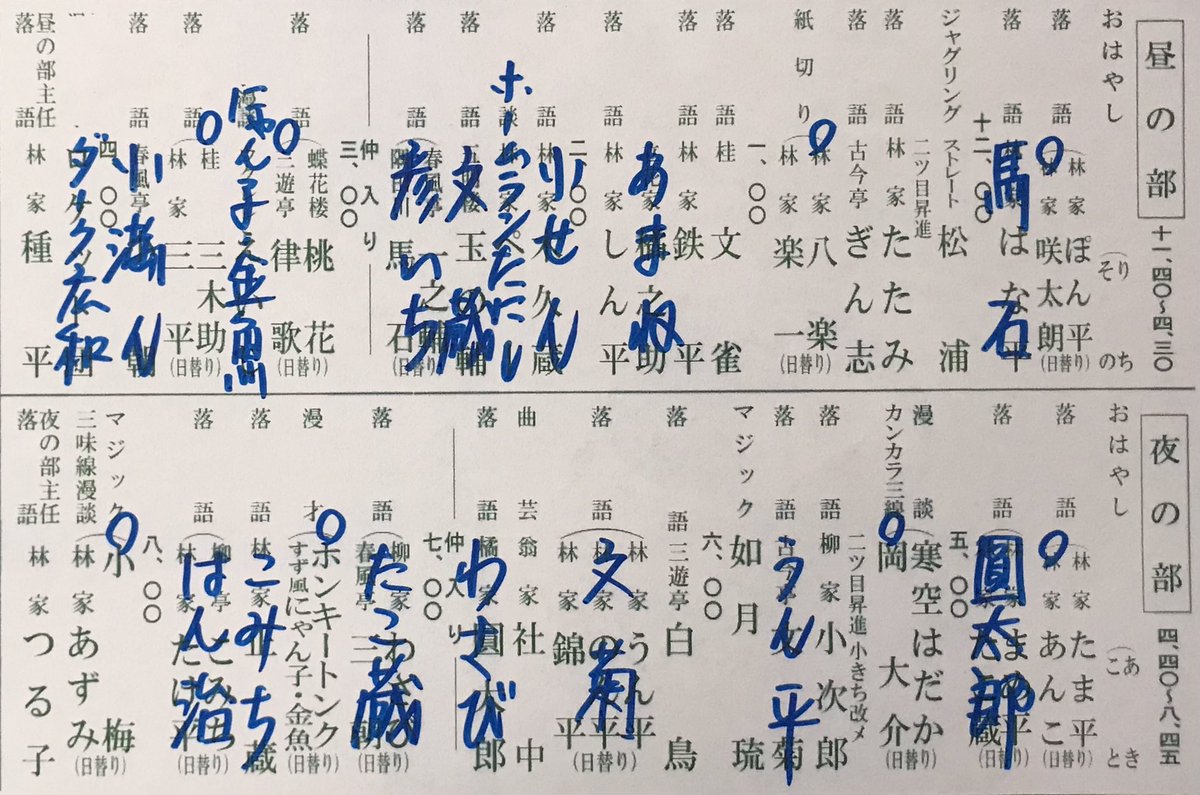 昼の部
十一、四〇〜四、三〇
おはやし
(そり のち)
落語
林家ぽん平
林家咲太朗
(日替り)
落語
林家はな平
馬石
十二、〇〇
ジャグリング
ストレート松浦
二ツ目昇進
落語
林家たたみ
落語
古今亭ぎん志
紙切り
林家八楽
林家楽一
(日替り)
一、〇〇
落語
桂文雀
落語
林家鉄平
落語
あま収
落語
林家しん平
二、〇〇
落語
林家木久蔵
りせん
漫談
ホームランたにし
落語
五明楼玉の輔
文蔵
落語
春風亭一之輔
隅田川馬石
彦いち
仲入り
三、〇〇
落語
蝶花楼桃花
三遊亭律歌
(日替り)
にゃん子・金魚
落語
桂三木助
林家三平
(日替り)
落語
春風亭
小満ん
四、〇〇
ダーク広和
昼の部主任
落語
林家種平
夜の部
四、四〇〜八、四五
おはやし
(あこ とき)
落語
林家たま平
林家あんこ
(日替り)
落語
(日替り)
圓太郎
五、〇〇
漫談
寒空はだか
カンカラ三線
岡大介
(日替り)
二ツ目昇進小きち改メ
落語
柳家小次郎
落語
古今亭文菊
うん平
マジック
如月琉
六、〇〇
落語
三遊亭白鳥
落語
林家うん平
林家錦平
(日替り)
文菊
曲芸
翁家社中
落語
橘家圓太郎
わさび
仲入り
七、〇〇
落語
柳家わさび
春風亭三朝
(日替り)
たこ蔵
漫才
ホンキートンク
すず風にゃん子・金魚
(日替り)
落語
林家正蔵
こみち
落語
柳亭こみち
林家たけ平
(日替り)
はん治
八、〇〇
マジック
小梅
三味線漫談
林家あずみ
(日替り)
夜の部主任
落語
林家つる子